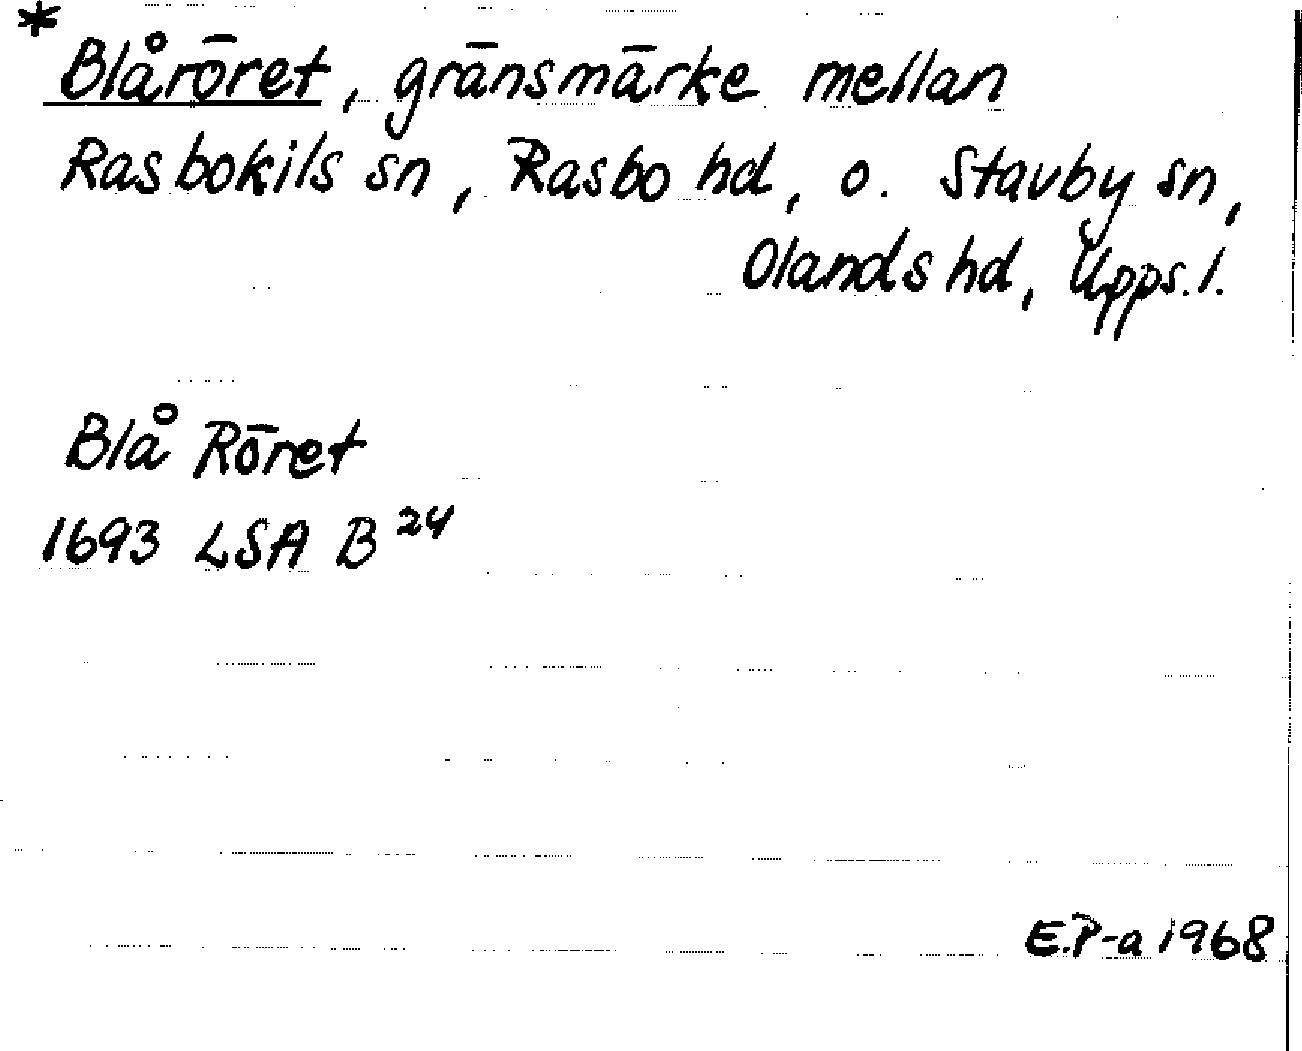 * Blåröret, gränsmärke mellan
Rasbokils sn, Rasbo hd, o. Stavby sn,
Olands hd, Upps. l.
Blå Röret
1693 LSA B 24
E.P-a 1968